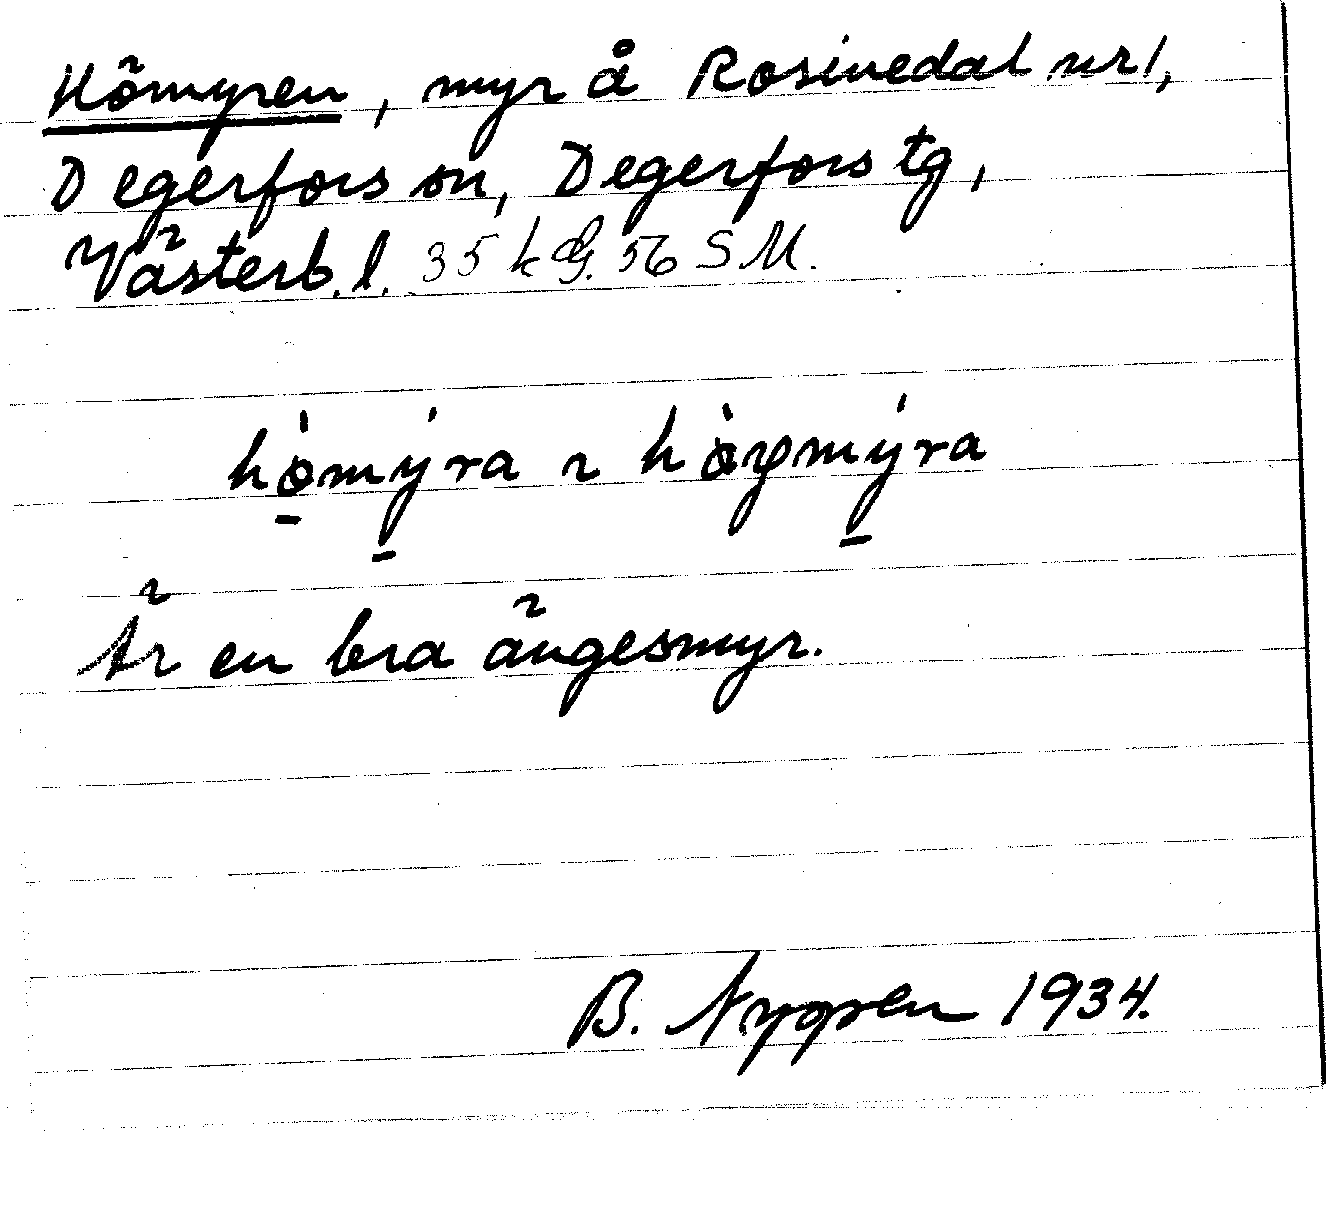 Hömyren, myr å Rosinedal nr 1,
Degerfors sn, Degerfors tg,
Västerb. l. 35 k G. 56 SM.
hömýra ~ högmýra
Är en bra ängesmyr.
B. Nygren 1934.